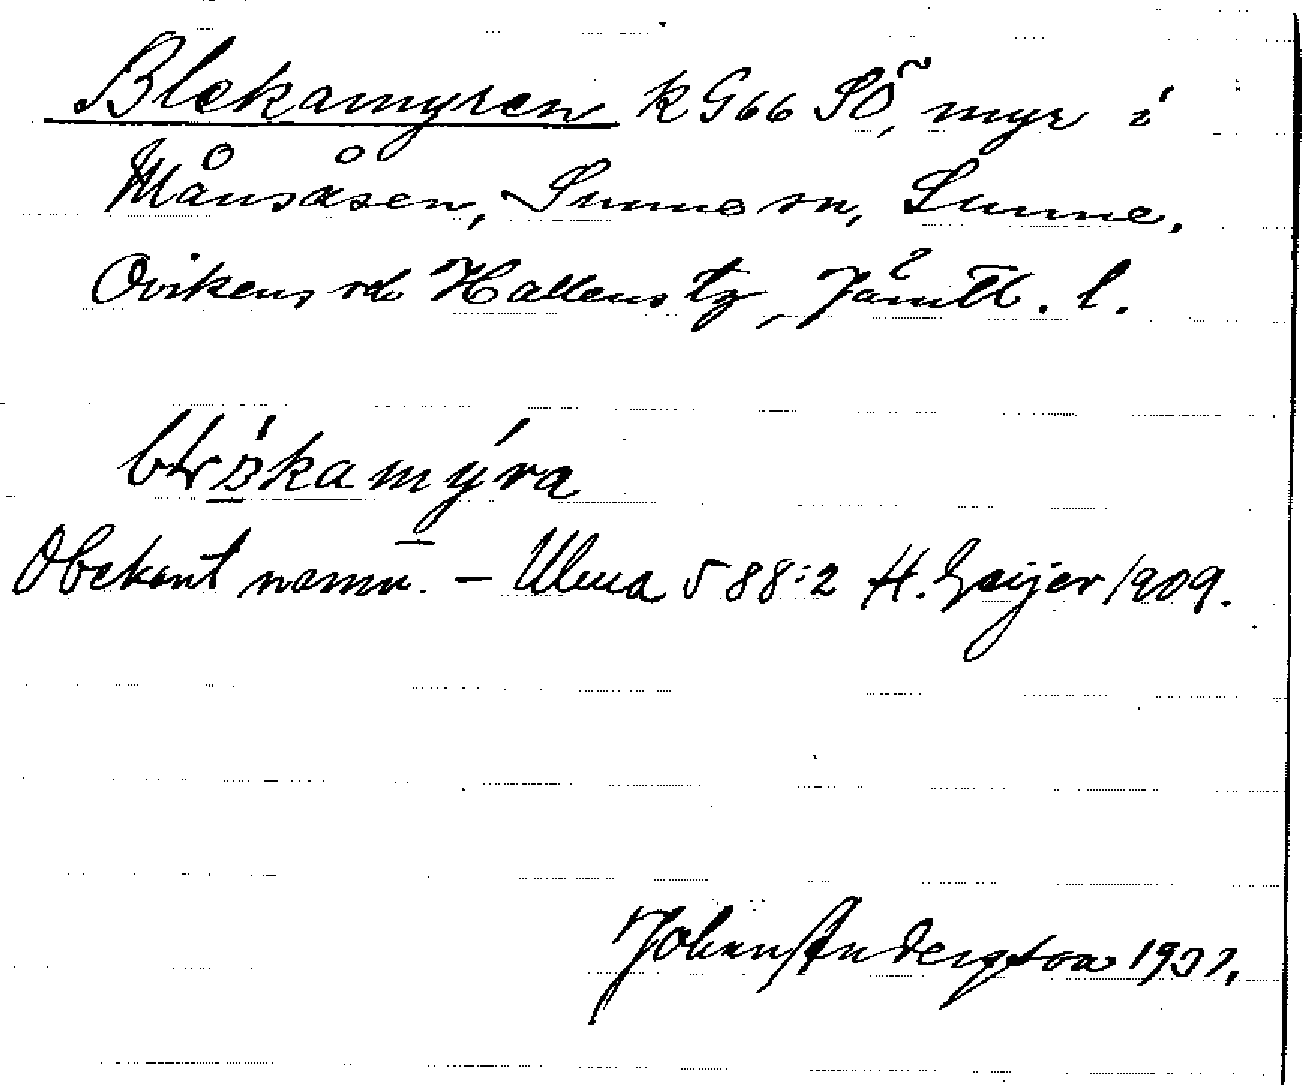 Blekamyren k G 66 SÖ, myr i
Månsåsen, Sunne sn, Sunne,
Ovikens och Hallens tg, Jämtl. l.
blɩ̀kamýra
Obekant namn. – Ulma 588:2 H. Geijer 1909.
Johan Andersson 1931.